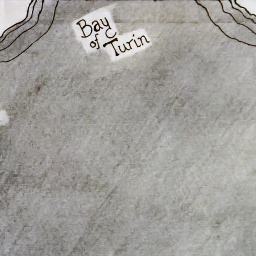 Bay
of Turin